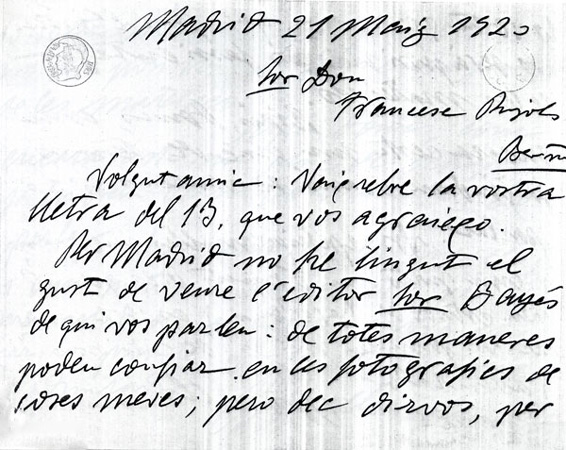 Madrid 21 Maig 1920
Sor Don
Francesc Pujols
Volgut amic: Vaig rebre la vostra
lletra del 13, que vos agraiego.
Per Madrid no he tingut el
gust de veure l'editor Sor Bayés
de qui vos parlen: de totes maneres
poden confiar en les fotografies de
coses meves; pero dec dirvos, per